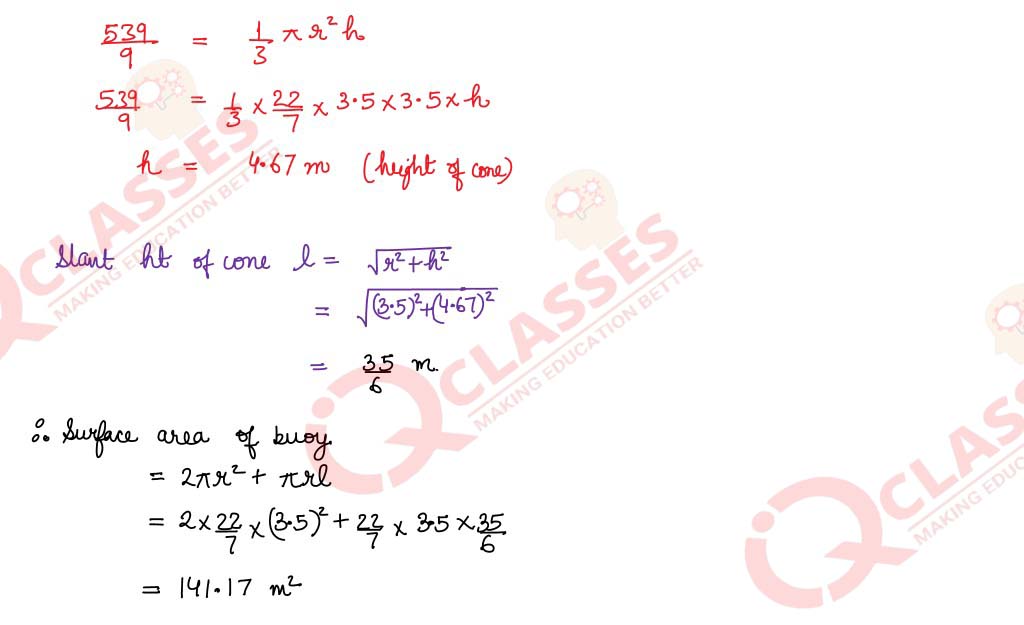 539/9 = 1/3 π r² h
539/9 = 1/3 × 22/7 × 3.5 × 3.5 × h
h = 4.67 m (height of cone)
Slant ht of cone l = √(r² + h²)
= √((3.5)² + (4.67)²)
= 35/6 m.
∴ Surface area of buoy.
= 2πr² + πrl
= 2 × 22/7 × (3.5)² + 22/7 × 3.5 × 35/6
= 141.17 m²
CLASSES
MAKING EDUCATION BETTER
CLASSES
MAKING EDUCATION BETTER
CLASSES
MAKING EDUCA